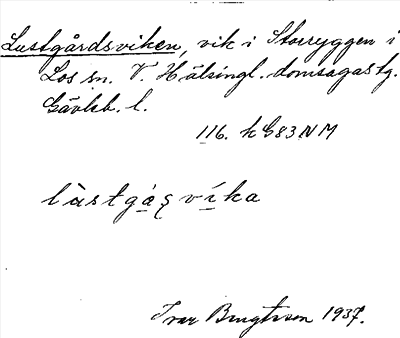 Lustgårdsviken, vik i Storryggen i
Los sn. V. Hälsingl. domsagas tg.
Gävleb. l.
116. h G83 NM
lùstgáṣvíka
Ivar Bengtsson 1937.